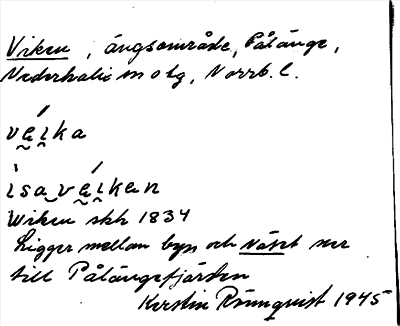 Viken, ängsområde, Pålänge,
Nederkalix sn o hg, Norrb. l.
vę́i̯ka
ìsa‿vę́i̯kan
Wiken skh 1834
Ligger mellan byn och Näset ner
till Pålängefjärden
Kerstin Rönnquist 1945